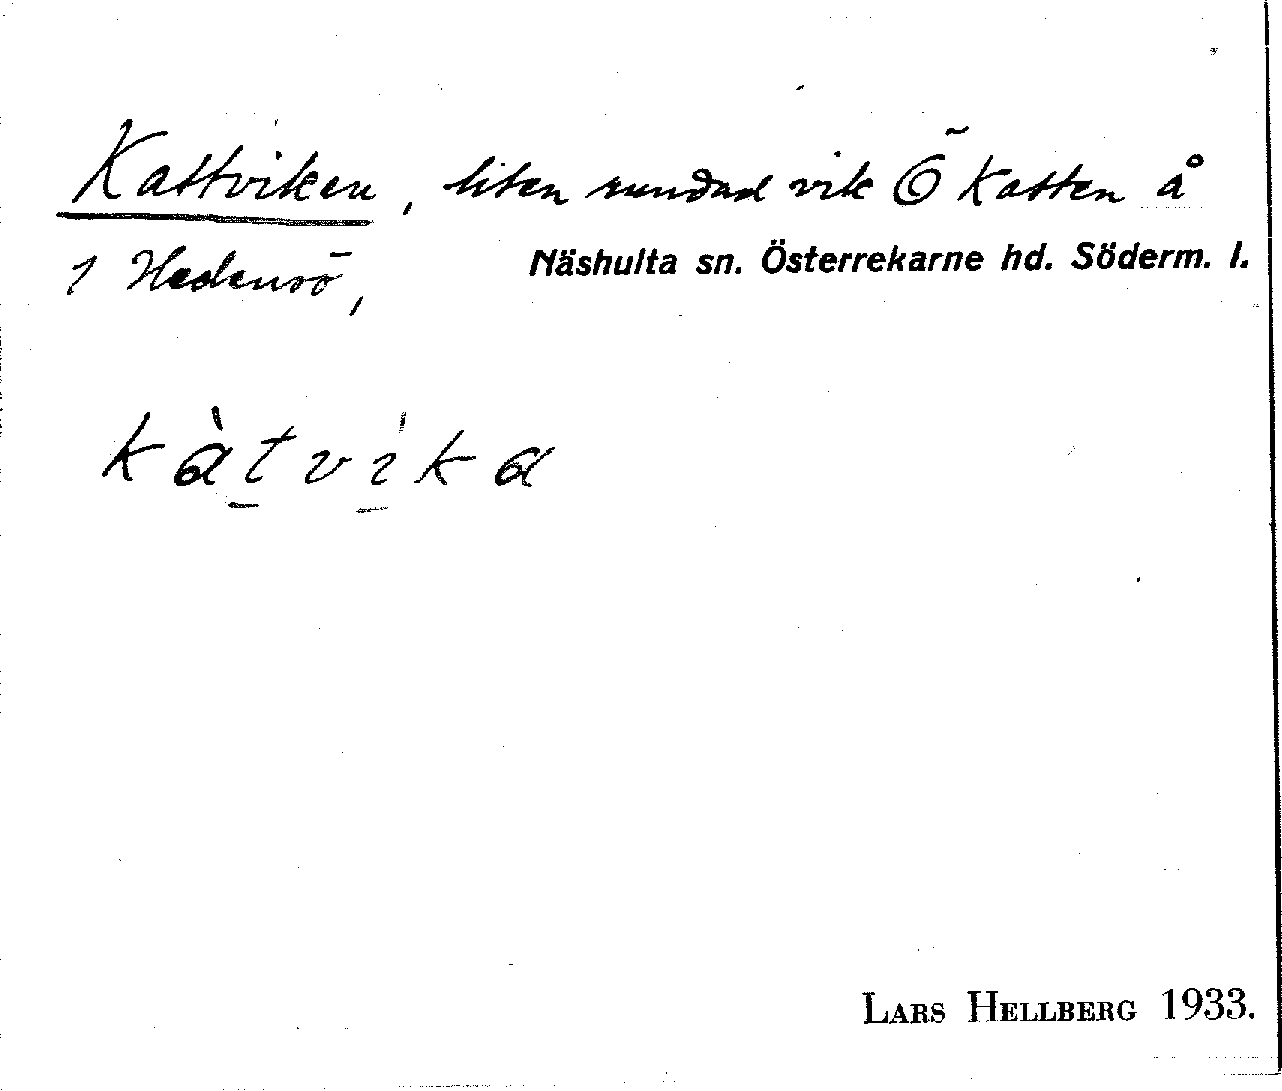 Kattviken, liten rundad vik Ö Katten å
1 Hedensö, Näshulta sn. Österrekarne hd. Söderm. l.
kàtvika
LARS HELLBERG 1933.